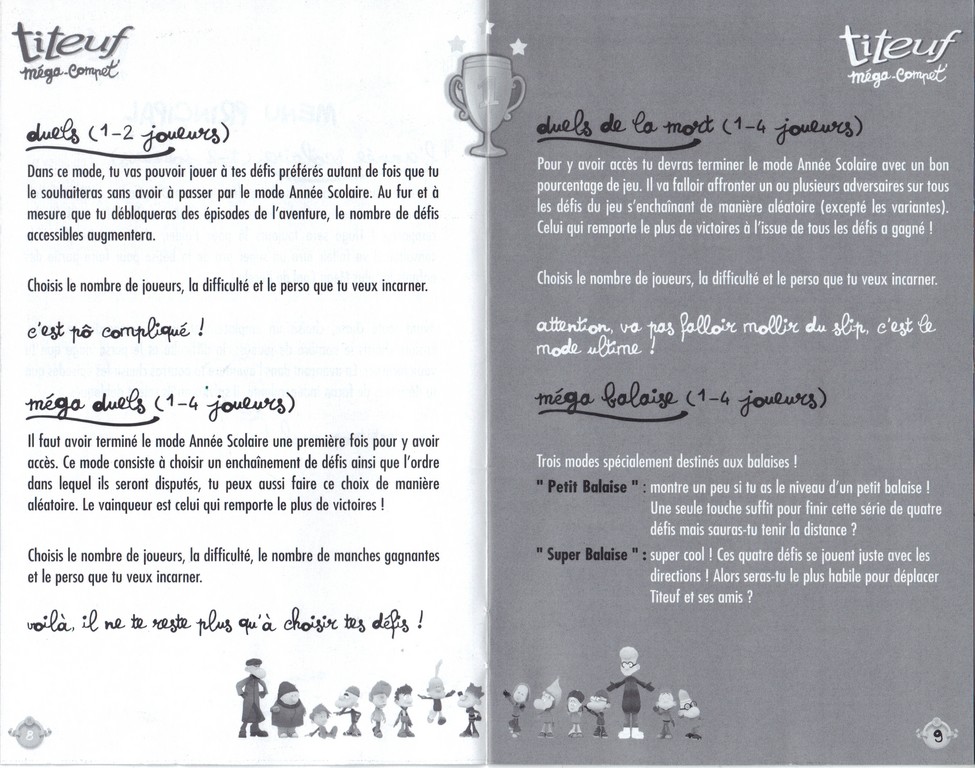 titeuf
méga-compet'
duels (1-2 joueurs)
Dans ce mode, tu vas pouvoir jouer à tes défis préférés autant de fois que tu
le souhaiteras sans avoir à passer par le mode Année Scolaire. Au fur et à
mesure que tu débloqueras des épisodes de l'aventure, le nombre de défis
accessibles augmentera.
Choisis le nombre de joueurs, la difficulté et le perso que tu veux incarner.
c'est pô compliqué !
méga duels (1-4 joueurs)
Il faut avoir terminé le mode Année Scolaire une première fois pour y avoir
accès. Ce mode consiste à choisir un enchaînement de défis ainsi que l'ordre
dans lequel ils seront disputés, tu peux aussi faire ce choix de manière
aléatoire. Le vainqueur est celui qui remporte le plus de victoires !
Choisis le nombre de joueurs, la difficulté, le nombre de manches gagnantes
et le perso que tu veux incarner.
voilà, il ne te reste plus qu'à choisir tes défis !
8
titeuf
méga-compet'
1
duels de la mort (1-4 joueurs)
Pour y avoir accès tu devras terminer le mode Année Scolaire avec un bon
pourcentage de jeu. Il va falloir affronter un ou plusieurs adversaires sur tous
les défis du jeu s'enchaînant de manière aléatoire (excepté les variantes).
Celui qui remporte le plus de victoires à l'issue de tous les défis a gagné !
Choisis le nombre de joueurs, la difficulté et le perso que tu veux incarner.
attention, va pas falloir mollir du slip, c'est le
mode ultime !
méga balaise (1-4 joueurs)
Trois modes spécialement destinés aux balaises !
" Petit Balaise " : montre un peu si tu as le niveau d'un petit balaise !
Une seule touche suffit pour finir cette série de quatre
défis mais sauras-tu tenir la distance ?
" Super Balaise " : super cool ! Ces quatre défis se jouent juste avec les
directions ! Alors seras-tu le plus habile pour déplacer
Titeuf et ses amis ?
9